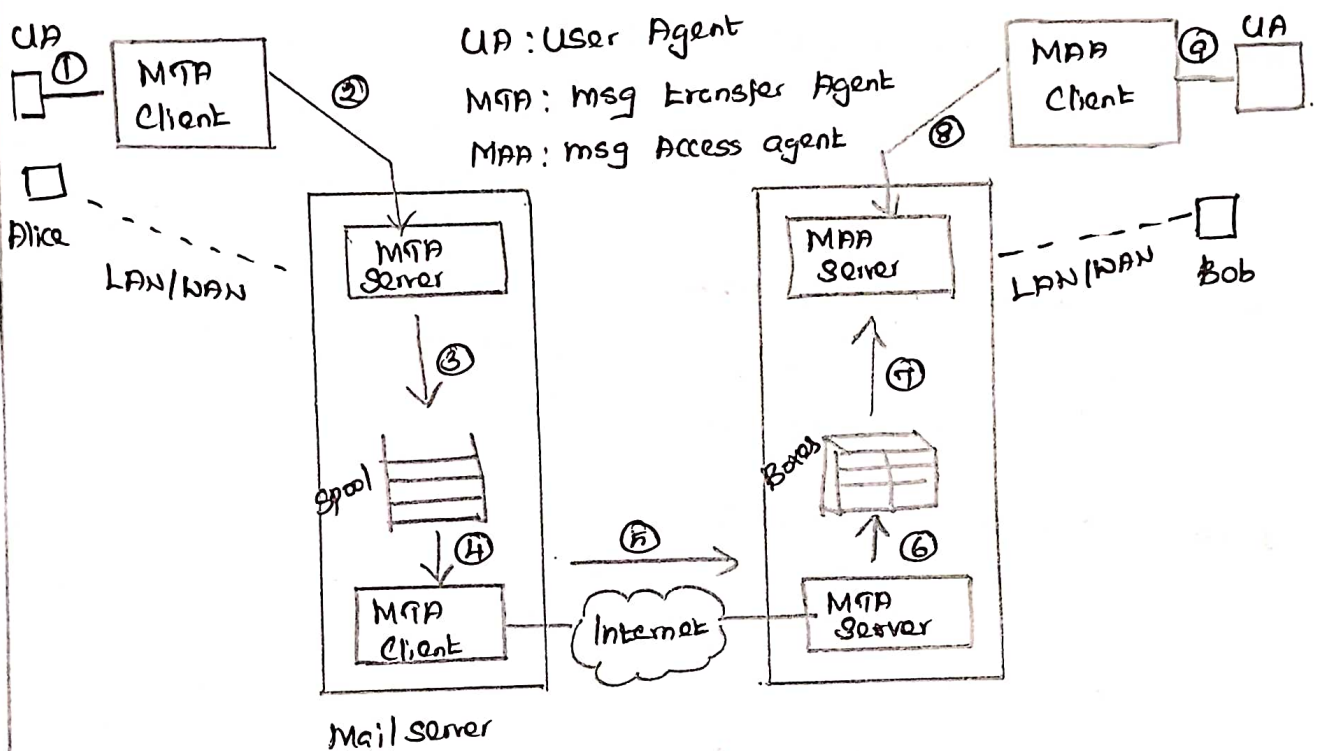 UA
①
MTA
Client
②
UA : User Agent
MTA : msg transfer Agent
MAA : msg Access agent
MAA
Client
⑨
UA
⑧
Alice
LAN/WAN
MTA
Server
③
Spool
④
MTA
Client
Mail server
⑤
Internet
MAA
Server
⑦
Boxes
⑥
MTA
Server
LAN/WAN
Bob